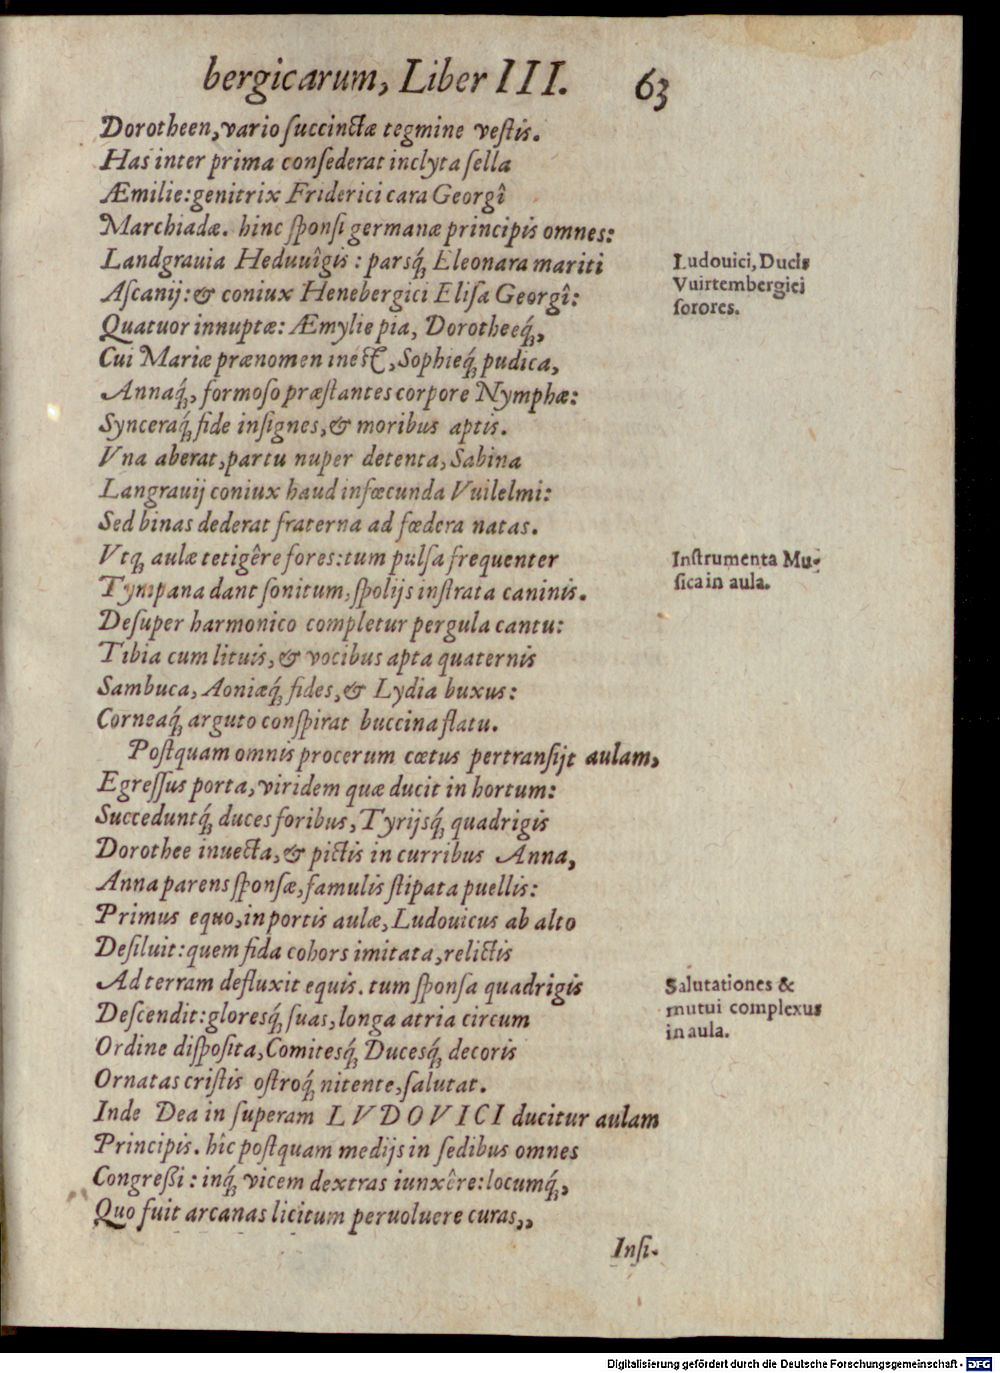 bergicarum, Liber III. 63
Dorotheen, vario ſuccinctæ tegmine veſtis.
Has inter prima conſederat inclyta ſella
Æmilie: genitrix Friderici cara Georgî
Marchiadæ. hinc ſponſi germanæ principis omnes:
Landgrauia Heduuîgis: parsq́ꝫ Eleonara mariti
Aſcanij: & coniux Henebergici Eliſa Georgî:
Quatuor innuptæ: Æmylie pia, Dorotheeq́ꝫ,
Cui Mariæ prænomen ineſt, Sophieq́ꝫ pudica,
Annaq́ꝫ, formoſo præſtantes corpore Nymphæ:
Synceraq́ꝫ fide inſignes, & moribus aptis.
Vna aberat, partu nuper detenta, Sabina
Langrauij coniux haud infœcunda Vuilelmi:
Sed binas dederat fraterna ad fœdera natas.
Vtqꝫ aulæ tetigêre fores: tum pulſa frequenter
Tympana dant ſonitum, ſpolijs inſtrata caninis.
Deſuper harmonico completur pergula cantu:
Tibia cum lituis, & vocibus apta quaternis
Sambuca, Aoniæq́ꝫ fides, & Lydia buxus:
Corneaq́ꝫ arguto conſpirat buccina flatu.
Poſtquam omnis procerum cœtus pertranſijt aulam,
Egreſſus porta, viridem quæ ducit in hortum:
Succeduntq́ꝫ duces foribus, Tyrijsq́ꝫ quadrigis
Dorothee inuecta, & pictis in curribus Anna,
Anna parens ſponſæ, famulis ſtipata puellis:
Primus equo, in portis aulæ, Ludouicus ab alto
Deſiluit: quem fida cohors imitata, relictis
Ad terram defluxit equis. tum ſponſa quadrigis
Deſcendit: gloresq́ꝫ ſuas, longa atria circum
Ordine diſpoſita, Comitesq́ꝫ Ducesq́ꝫ decoris
Ornatas criſtis oſtroq́ꝫ nitente, ſalutat.
Inde Dea in ſuperam LVDOVICI ducitur aulam
Principis. hîc poſtquam medijs in ſedibus omnes
Congreßi: inq́ꝫ vicem dextras iunxêre: locumq́ꝫ,
Quo fuit arcanas licitum peruoluere curas,,
Inſi-
Ludouici, Ducis
Vuirtembergici
ſorores.
Inſtrumenta Mu-
ſica in aula.
Salutationes &
mutui complexus
in aula.
Digitalisierung gefördert durch die Deutsche Forschungsgemeinschaft - DFG